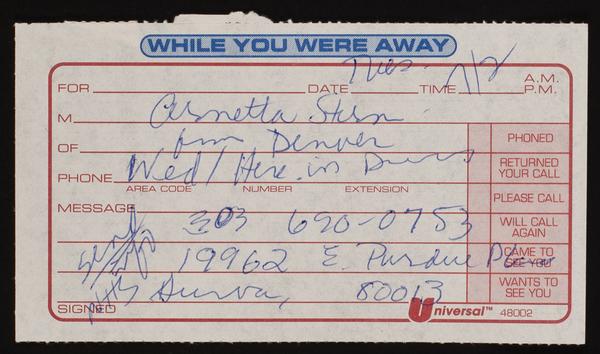 WHILE YOU WERE AWAY
FOR DATE Tues. TIME 7/2 A.M. P.M.
M Arnetta
OF from Denver PHONED
PHONE Wed / Here in RETURNED YOUR CALL
AREA CODE NUMBER EXTENSION
PLEASE CALL
MESSAGE 303 690-0753 WILL CALL AGAIN
19962 E. Purdue CAME TO SEE YOU
80013 WANTS TO SEE YOU
SIGNED Universal™ 48002